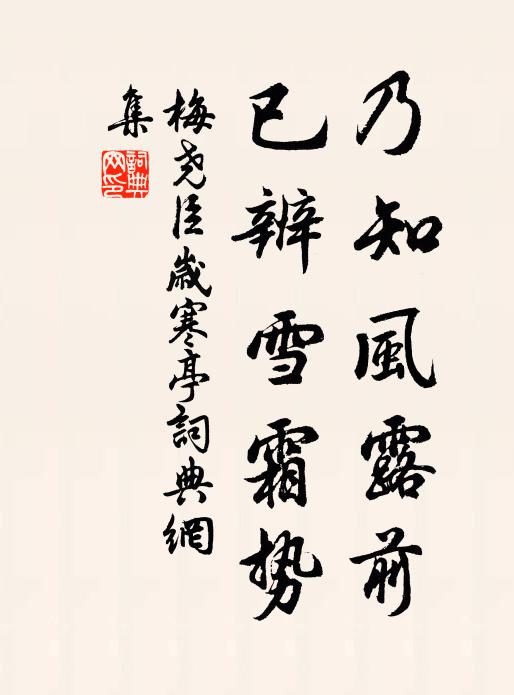 乃知風露前
已辨雪霜勢
梅堯臣歲寒亭詞典網
集
詞典
网印